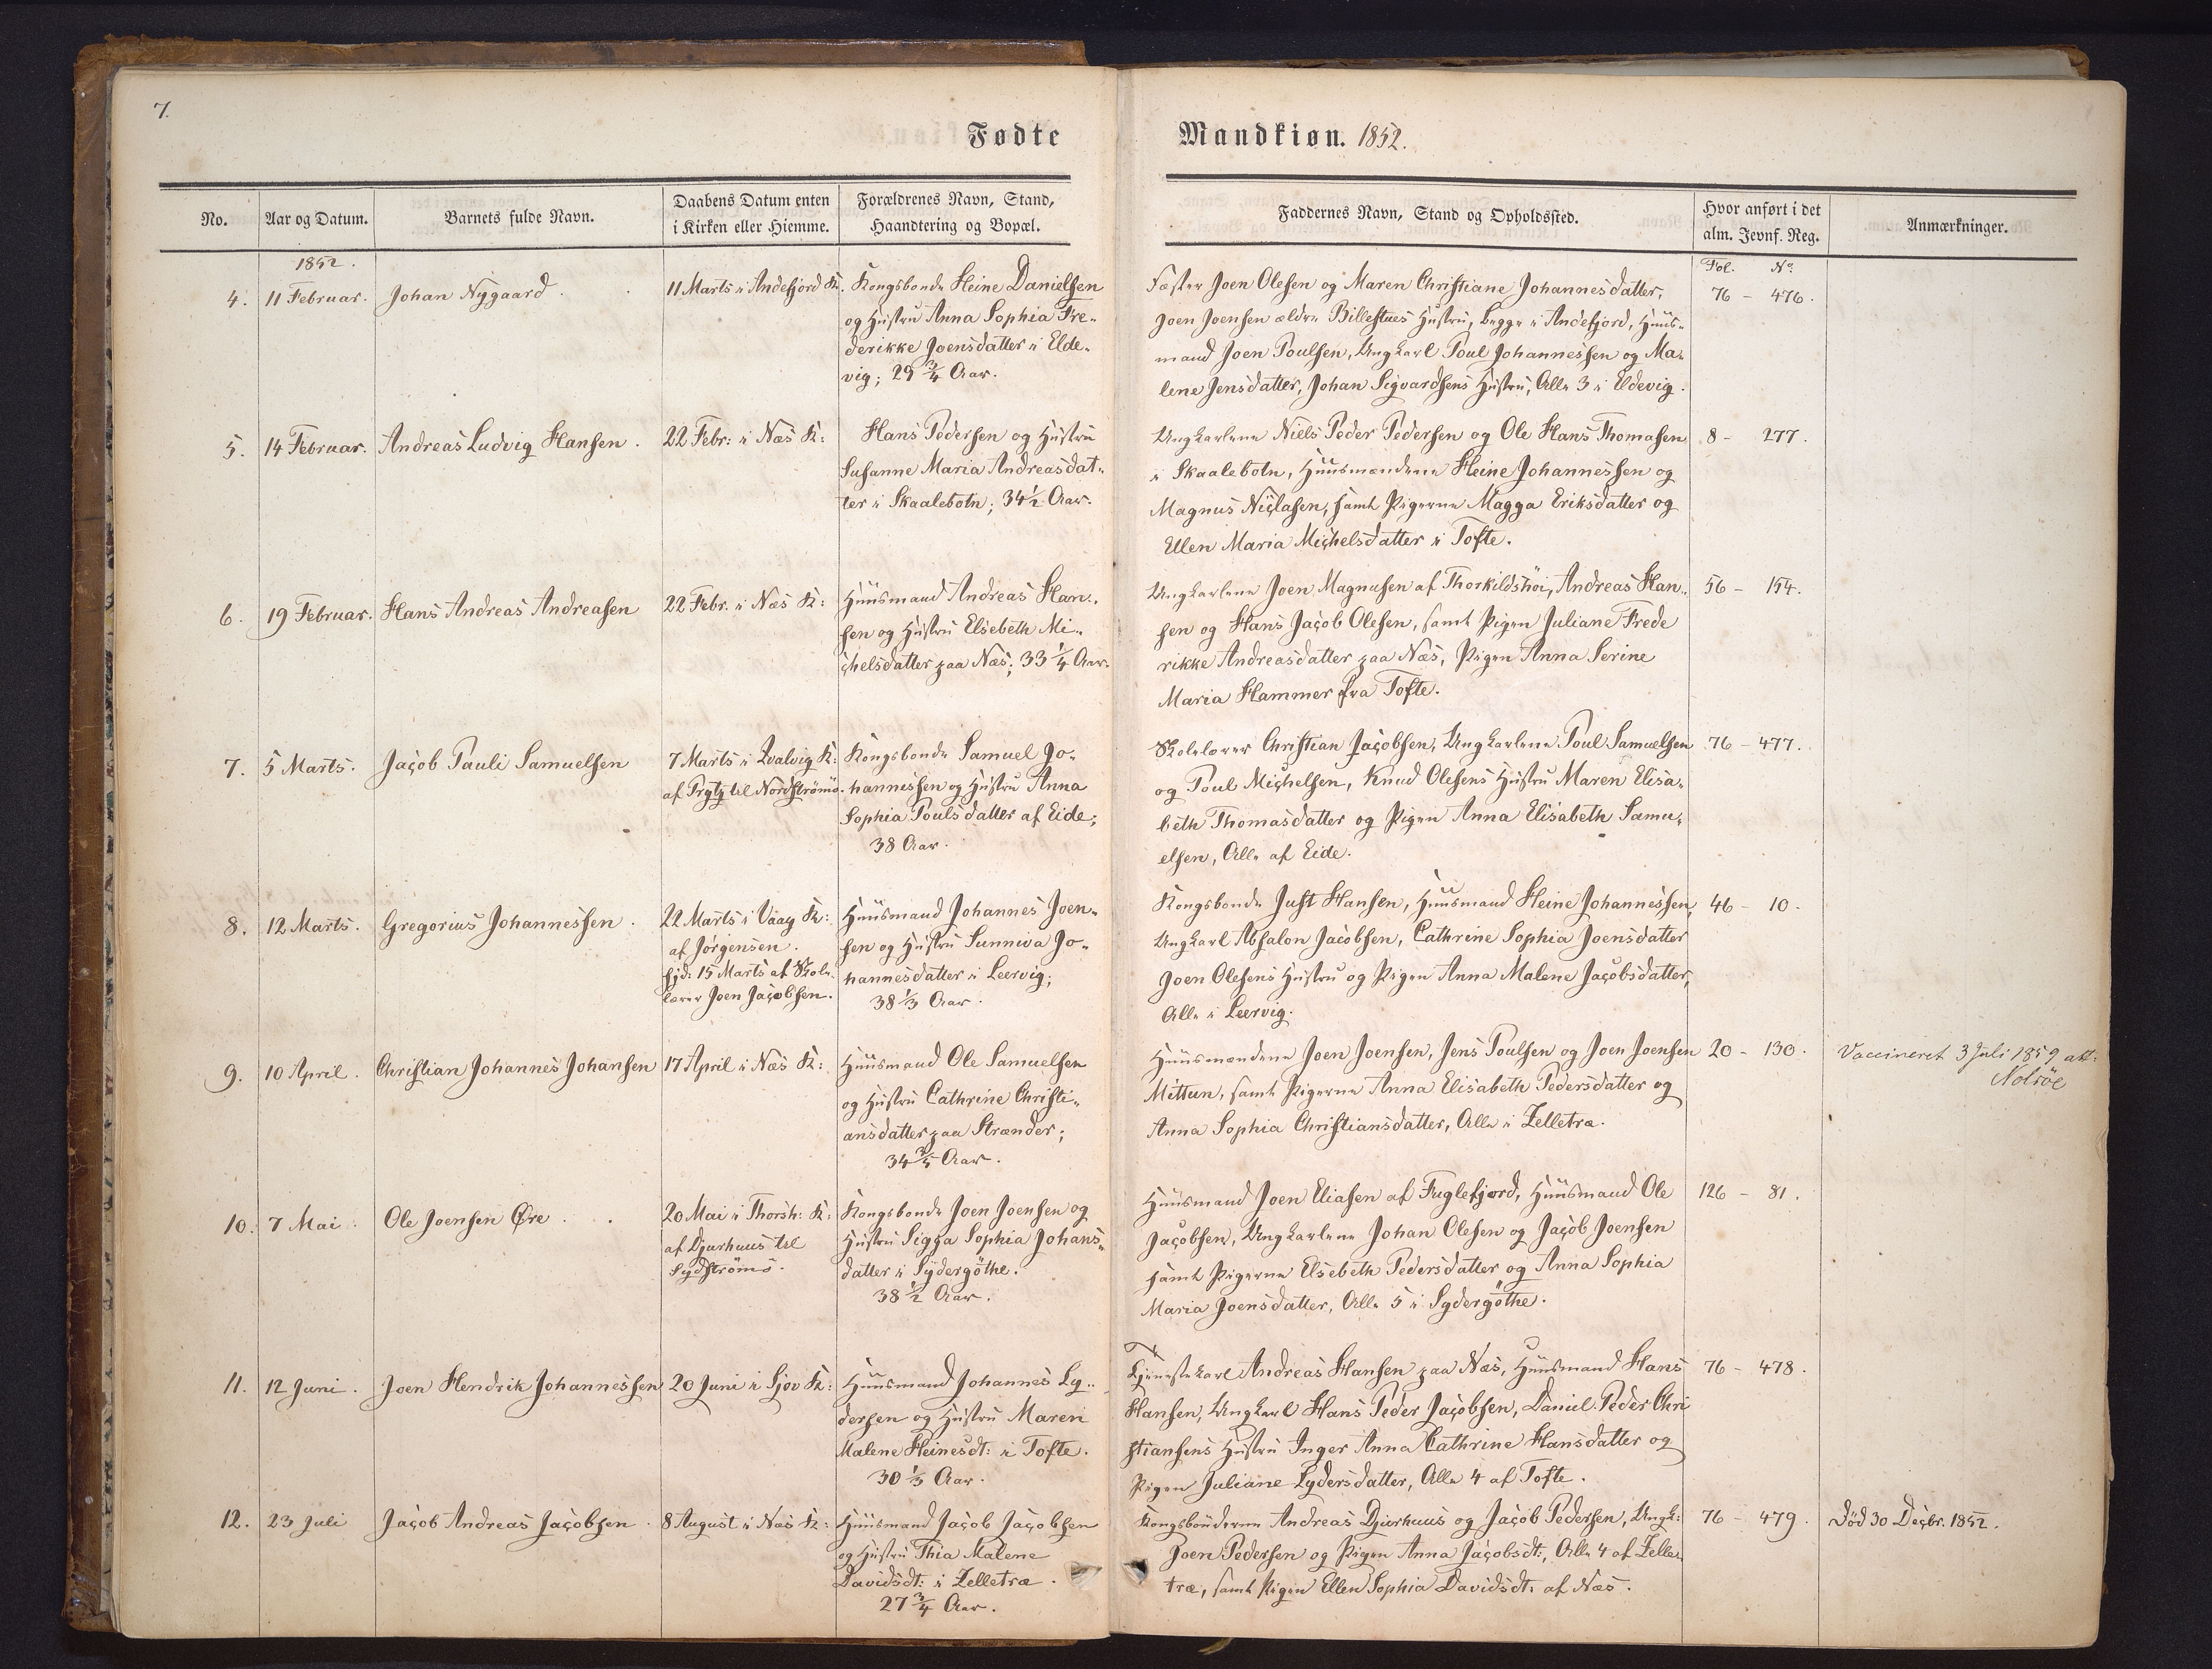 7.
Fødte
Mandkiøn. 1852.
No.
Aar og Datum.
Barnets fulde Navn.
Daabens Datum enten
i Kirken eller Hiemme.
Forældrenes Navn, Stand,
Haandtering og Bopæl.
Faddernes Navn, Stand og Opholdssted.
Hvor anført i det
alm. Jevnf. Reg.
Anmærkninger.
1852.
Fol. No
4. 11 Februar. Johan Nygaard. 11 Marts i Andefjord K.
Kongsbonde Heine Danielsen
og Hustru Anna Sophia Fre-
derikke Joensdatter i Elde-
vig; 29 3/4 Aar.
Fæster Joen Olesen og Maren Christiane Johannesdatter,
Joen Joensen ældre Billestues Hustru, begge i Andefjord, Huus-
mand Joen Poulsen, Ungkarl Poul Johannessen og Ma-
lene Jensdatter, Johan Sigvardsens Hustru, Alle 3 i Eldevig.
76 - 476.
5. 14 Februar. Andreas Ludvig Hansen. 22 Febr: i Næs K:
Hans Pedersen og Hustru
Susanne Maria Andreasdat-
ter i Skaalebotn; 34 1/2 Aar.
Ungkarlene Niels Peder Pedersen og Ole Hans Thomasen
i Skaalebotn, Huusmændene Heine Johannessen og
Magnus Niclasen, samt Pigerne Magga Eriksdatter og
Ellen Maria Michelsdatter i Tofte.
8 - 277.
6. 19 Februar. Hans Andreas Andreasen 22 Febr. i Næs K:
Huusmand Andreas Han-
sen og Hustru Elsebeth Mi-
chelsdatter paa Næs; 33 1/4 Aar.
Ungkarlene Joen Magnusen af Thorkildshöi, Andreas Han-
sen og Hans Jacob Olesen, samt Pigen Juliane Frede
rikke Andreasdatter paa Næs, Pigen Anna Serine
Maria Hammer fra Tofte.
56 - 154.
7. 5 Marts. Jacob Pauli Samuelsen 7 Marts i Qvalvig K:
af Prgtz til Nordströmö.
Kongsbonde Samuel Jo-
hannessen og Hustru Anna
Sophia Poulsdatter af Eide;
38 Aar.
Skolelærer Christian Jacobsen, Ungkarlene Poul Samuelsen
og Poul Michelsen, Knud Olesens Hustru Maren Elisa-
beth Thomasdatter og Pigen Anna Elisabeth Samu-
elsen, Alle af Eide.
76 - 477.
8. 12 Marts. Gregorius Johannessen. 22 Marts i Vaag K:
af Jörgensen.
hjd. 15 Marts af Skole-
lærer Joen Jacobsen.
Huusmand Johannes Joen-
sen og Hustru Sunniva Jo-
hannesdatter i Leervig;
38 1/3 Aar.
Kongsbonde Just Hansen, Huusmand Heine Johannessen,
Ungkarl Absalon Jacobsen, Cathrine Sophia Joensdatter
Joen Olesens Hustru og Pigen Anna Malene Jacobsdatter,
Alle i Leervig.
46 - 10.
9. 10 April. Christian Johannes Johansen 17 April i Næs K:
Huusmand Ole Samuelsen
og Hustru Cathrine Christi-
ansdatter paa Strænder;
34 3/5 Aar.
Huusmændene Joen Joensen, Jens Poulsen og Joen Joensen
Mittun, samt Pigerne Anna Elisabeth Pedersdatter og
Anna Sophia Christiansdatter, Alle i Zelletra.
20 - 130.
Vaccineret 3 Juli 1859 att:
Nolsöe
10. 7 Mai. Ole Joensen Øre. 20 Mai i Thorsh: K:
af Djurhuus til
Sydströmö.
Kongsbonde Joen Joensen og
Hustru Sigga Sophia Johans-
datter i Sydergöthe.
38 1/2 Aar.
Huusmand Joen Eliasen af Fuglefjord, Huusmand Ole
Jacobsen, Ungkarlene Johan Olesen og Jacob Joensen
samt Pigerne Elsebeth Pedersdatter og Anna Sophia
Maria Joensdatter, Alle 5 i Sydergöthe.
126 - 81.
11. 12 Juni. Joen Hendrik Johannessen 20 Juni i Sjov K:
Huusmand Johannes Ly-
dersen og Hustru Maren
Malene Heinesdt: i Tofte.
30 1/3 Aar.
Tjenestekarl Andreas Hansen paa Næs, Huusmand Hans
Hansen, Ungkarl Hans Peder Jacobsen, Daniel Peder Chri
stiansens Hustru Inger Anna Cathrine Hansdatter og
Pigen Juliane Lydersdatter, Alle 4 af Tofte.
76 - 478.
12. 23 Juli Jacob Andreas Jacobsen. 8 August i Næs K:
Huusmand Jacob Jacobsen
og Hustru Thia Malene
Davidsdt: i Zelletræ.
27 3/4 Aar.
Kongsbönderne Andreas Djurhuus og Jacob Pedersen, Ungk:
Joen Pedersen og Pigen Anna Jacobsdt:, Alle 4 af Zelle-
træ, samt Pigen Ellen Sophia Davidsdt: af Næs.
76 - 479.
Död 30 Decbr. 1852.